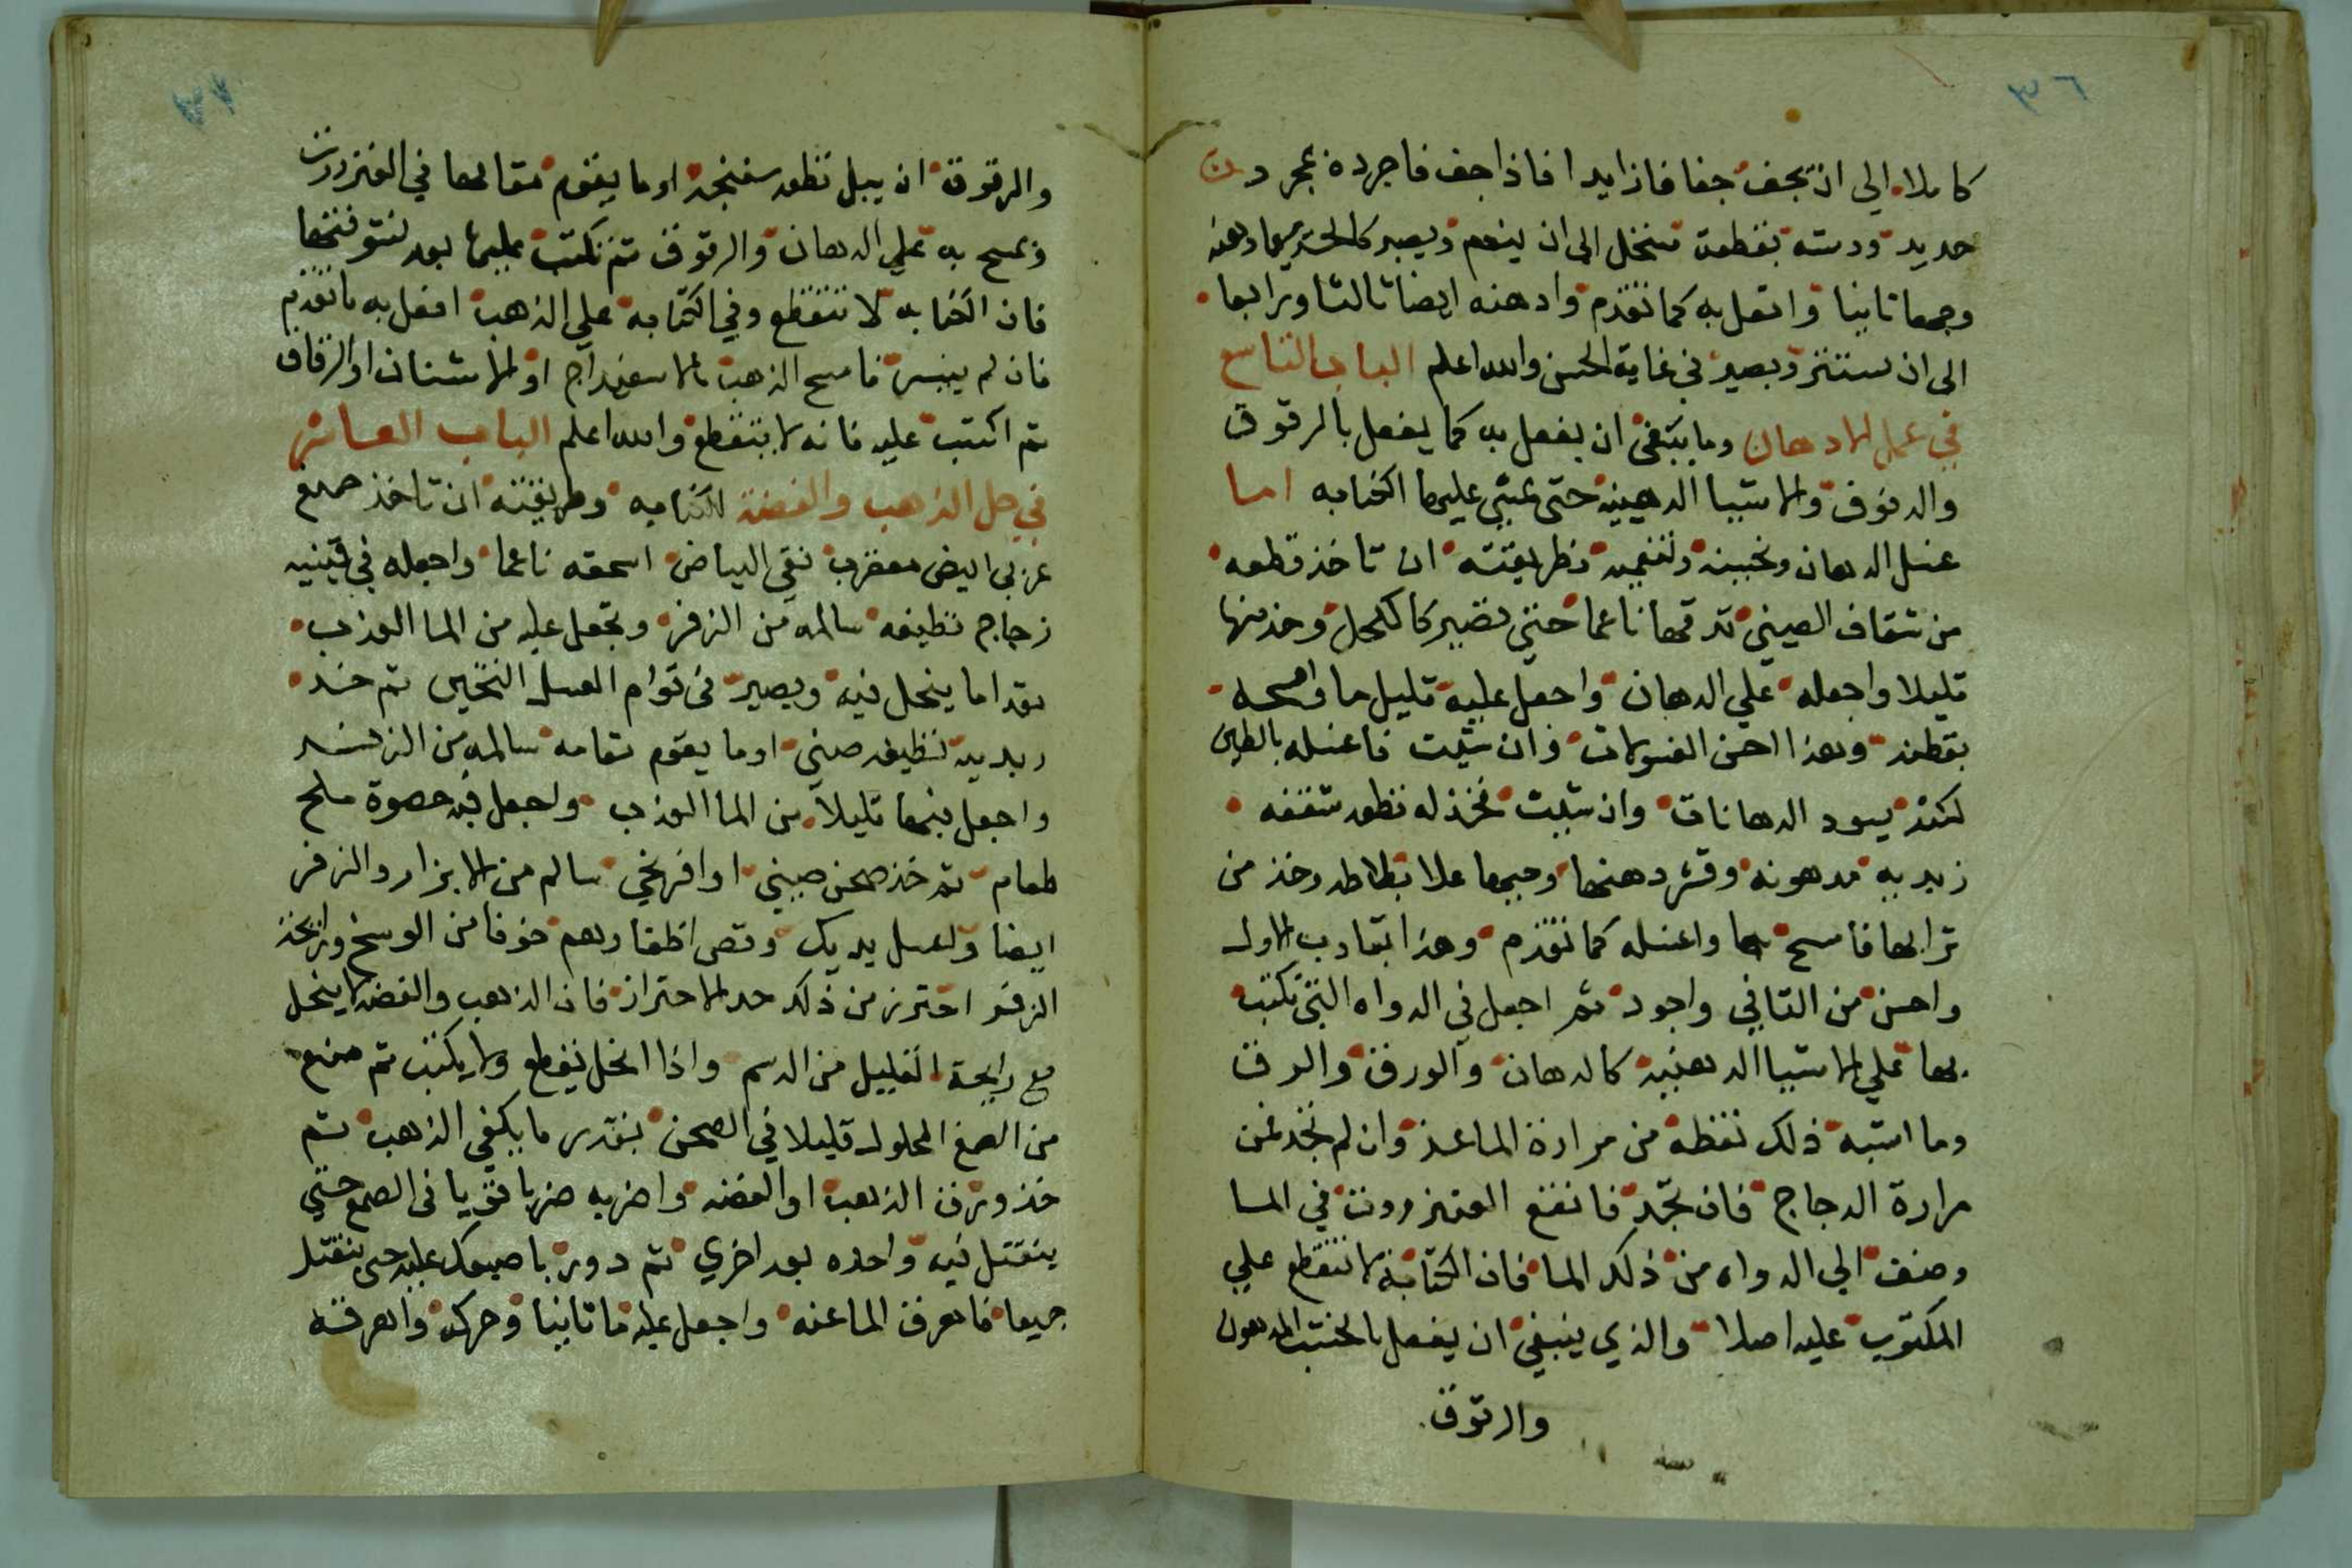 ٣٦
كاملا الى ان يجف جفافا زايدا فاذا جف فاجرده بمجردن
حديد ودسته بقطعة منخل الى ان ينعم ويصير كالحرير وادهنه
وجهها ثانيا وافعل به كما تقدم وادهنه ايضا ثالثا ورابعا
الى ان يستتر ويصير في غاية الحسن والله اعلم الباب التاسع
في عمل الادهان وما ينبغي ان يفعل به كما يفعل بالرقوق
والدفوف والاشيا الدهينية حتى تمشي عليها الكتابه اما
غسل الدهان وتخبينه وتنعيمه فطريقته ان تاخذ قطعه
من شقاف الصيني تدقها ناعما حتى تصير كالكحل وخذ منها
قليلا واجعله على الدهان واجعل عليه قليل ما وامسحه
بقطنه وهذا احسن الغسولات وان شيت فاغسله بالطين
لكنه يسود الدهانات وان شيت فخذ له نظيف شقفه
زبديه مدهونه وقشر دهنها وحكها علا بلاطه وخذ من
ترابها فامسح بها واغسله كما تقدم وهذا يقارب الاول
واحسن من الثاني واجود ثم اجعل في الدواه التي تكتب
بها على الاشيا الدهنيه كالدهان والورق والرق
وما اشبه ذلك نقطه من مرارة الماعز وان لم تجد فمن
مرارة الدجاج فان تجد فانقع العنزروت في الما
وضف الى الدواه من ذلك الما فان الكتابة لا تتقطع على
المكتوب عليه اصلا والذي ينبغي ان يفعل بالخشب المدهون
والرقوق
والرقوق ان يبل قطعه سفنجه او ما يقوم مقامها في العنزروت
ويمسح به على الدهان والرقوق ثم تكتب عليها بعد تنشفها
فان الكتابه لا تتقطع وفي الكتابه على الذهب افعل به ما تقدم
فان لم يتيسر فامسح الذهب بالاسفيداج او الاشنان او الرقاق
ثم اكتب عليه فانه لا يتقطع والله اعلم الباب العاشر
في حل الذهب والفضة للكتابه وطريقته ان تاخذ صمغ
عربي ابيض معقرب نقي البياض اسحقه ناعما واجعله في قنينيه
زجاج نظيفه سالمه من الزفر وتجعل عليه من الما العذب
بقدر ما ينحل فيه ويصير في قوام العسل الثخين ثم خذ
زبديه نظيفه صيني او ما يقوم مقامه سالمه من الزفر
واجعل فيها قليلا من الما العذب واجعل فيه حصوة ملح
طعام ثم خذ صحن صيني او افرنجي سالم من الابزار والزفر
ايضا واغسل يديك وقص اظفارهم خوفا من الوسخ ورايحة
الزفر احترز من ذلك حد الاحتراز فان الذهب والفضه لا ينحل
مع رايحة القليل من الدسم واذا انحل يقطع ولا يكتب ثم ضع
من الصمغ المحلول قليلا في الصحن بقدر ما يكفي الذهب ثم
خذ ورق الذهب او الفضه واضربه ضربا قويا في الصمغ حتى
ينقتل فيه واحده بعد اخري ثم دور باصبعك عليه حتى ينقتل
جميعا فاهرق الما عنه واجعل عليه ما ثانيا وحركه واهرقه